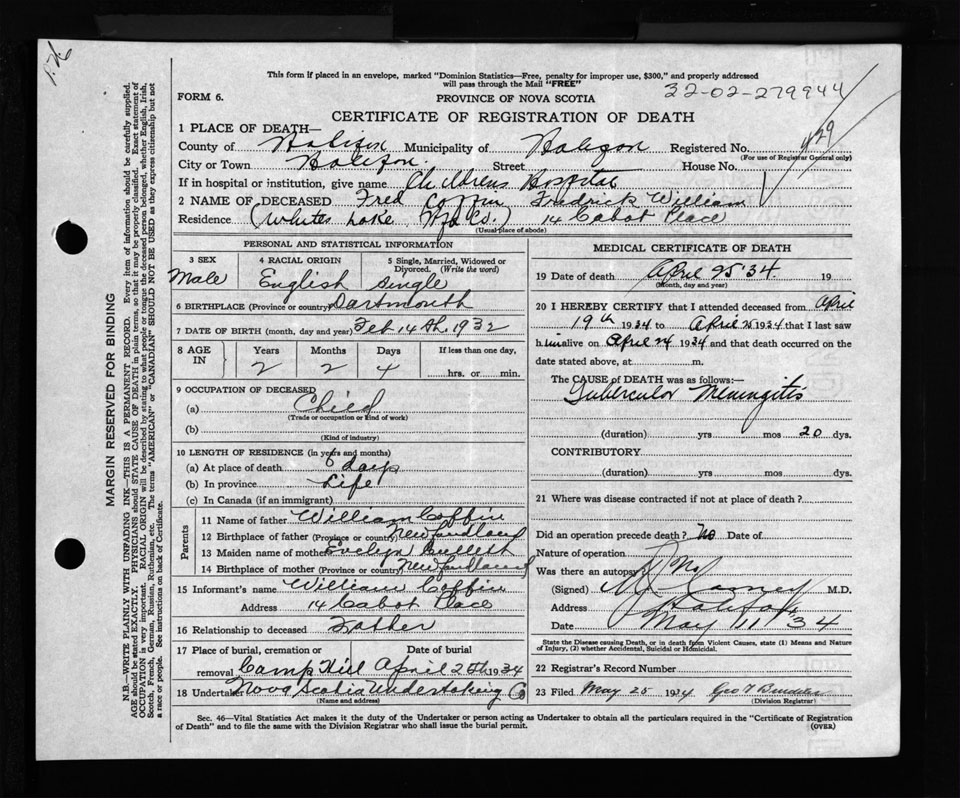 1.76
This form if placed in an envelope, marked "Dominion Statistics—Free, penalty for improper use, $300," and properly addressed
will pass through the Mail "FREE"
32-02-279944
FORM 6.
PROVINCE OF NOVA SCOTIA
CERTIFICATE OF REGISTRATION OF DEATH
1 PLACE OF DEATH—
County of Halifax Municipality of Halifax Registered No. 429
(For use of Registrar General only)
City or Town Halifax. Street House No.
If in hospital or institution, give name Childrens Hospital
2 NAME OF DECEASED Fred Coffin Fredrick William
Residence (Whites Lake Hfx Co.) 14 Cabot Place
(Usual place of abode)
PERSONAL AND STATISTICAL INFORMATION
3 SEX 4 RACIAL ORIGIN 5 Single, Married, Widowed or
Divorced. (Write the word)
Male English Single
6 BIRTHPLACE (Province or country) Dartmouth
7 DATE OF BIRTH (month, day and year) Feb 14th 1932
8 AGE IN Years Months Days If less than one day,
2 2 4 hrs. or min.
9 OCCUPATION OF DECEASED
(a) Child
(Trade or occupation or kind of work)
(b)
(Kind of industry)
10 LENGTH OF RESIDENCE (in years and months)
(a) At place of death 6 days
(b) In province Life
(c) In Canada (if an immigrant)
Parents
11 Name of father William Coffin
12 Birthplace of father (Province or country) Newfoundland
13 Maiden name of mother Evelyn
14 Birthplace of mother (Province or country) Newfoundland
15 Informant's name William Coffin
Address 14 Cabot Place
16 Relationship to deceased Father
17 Place of burial, cremation or removal Date of burial
Camp Hill April 25th 1934
18 Undertaker Nova Scotia Undertaking Co
(Name and address)
MEDICAL CERTIFICATE OF DEATH
19 Date of death April 25 '34 19
(Month, day and year)
20 I HEREBY CERTIFY that I attended deceased from April
19th 1934 to April 25 1934 that I last saw
him alive on April 24 1934 and that death occurred on the
date stated above, at m.
The CAUSE OF DEATH was as follows:—
Tubercular Meningitis
(duration) yrs mos 20 dys.
CONTRIBUTORY
(duration) yrs mos dys.
21 Where was disease contracted if not at place of death?
Did an operation precede death? No Date of
Nature of operation
Was there an autopsy? No
(Signed) M.D.
Address Halifax
Date May 11 '34
State the Disease causing Death, or in death from Violent Causes, state (1) Means and Nature
of Injury, (2) whether Accidental, Suicidal or Homicidal.
22 Registrar's Record Number
23 Filed May 25 1934 Geo
(Division Registrar)
Sec. 46—Vital Statistics Act makes it the duty of the Undertaker or person acting as Undertaker to obtain all the particulars required in the "Certificate of Registration
of Death" and to file the same with the Division Registrar who shall issue the burial permit.
(OVER)
MARGIN RESERVED FOR BINDING
N.B.—WRITE PLAINLY WITH UNFADING INK—THIS IS A PERMANENT RECORD. Every item of information should be carefully supplied.
AGE should be stated EXACTLY. PHYSICIANS should STATE CAUSE OF DEATH in plain terms, so that it may be properly classified. Exact statement of
OCCUPATION is very important. RACIAL ORIGIN will be described by stating to what people or tongue the deceased person belonged, whether English, Irish,
Scotch, French, German, Russian, Ruthenian, etc. The terms "AMERICAN" or "CANADIAN" SHOULD NOT BE USED as they express citizenship but not
a race or people. See instructions on back of Certificate.